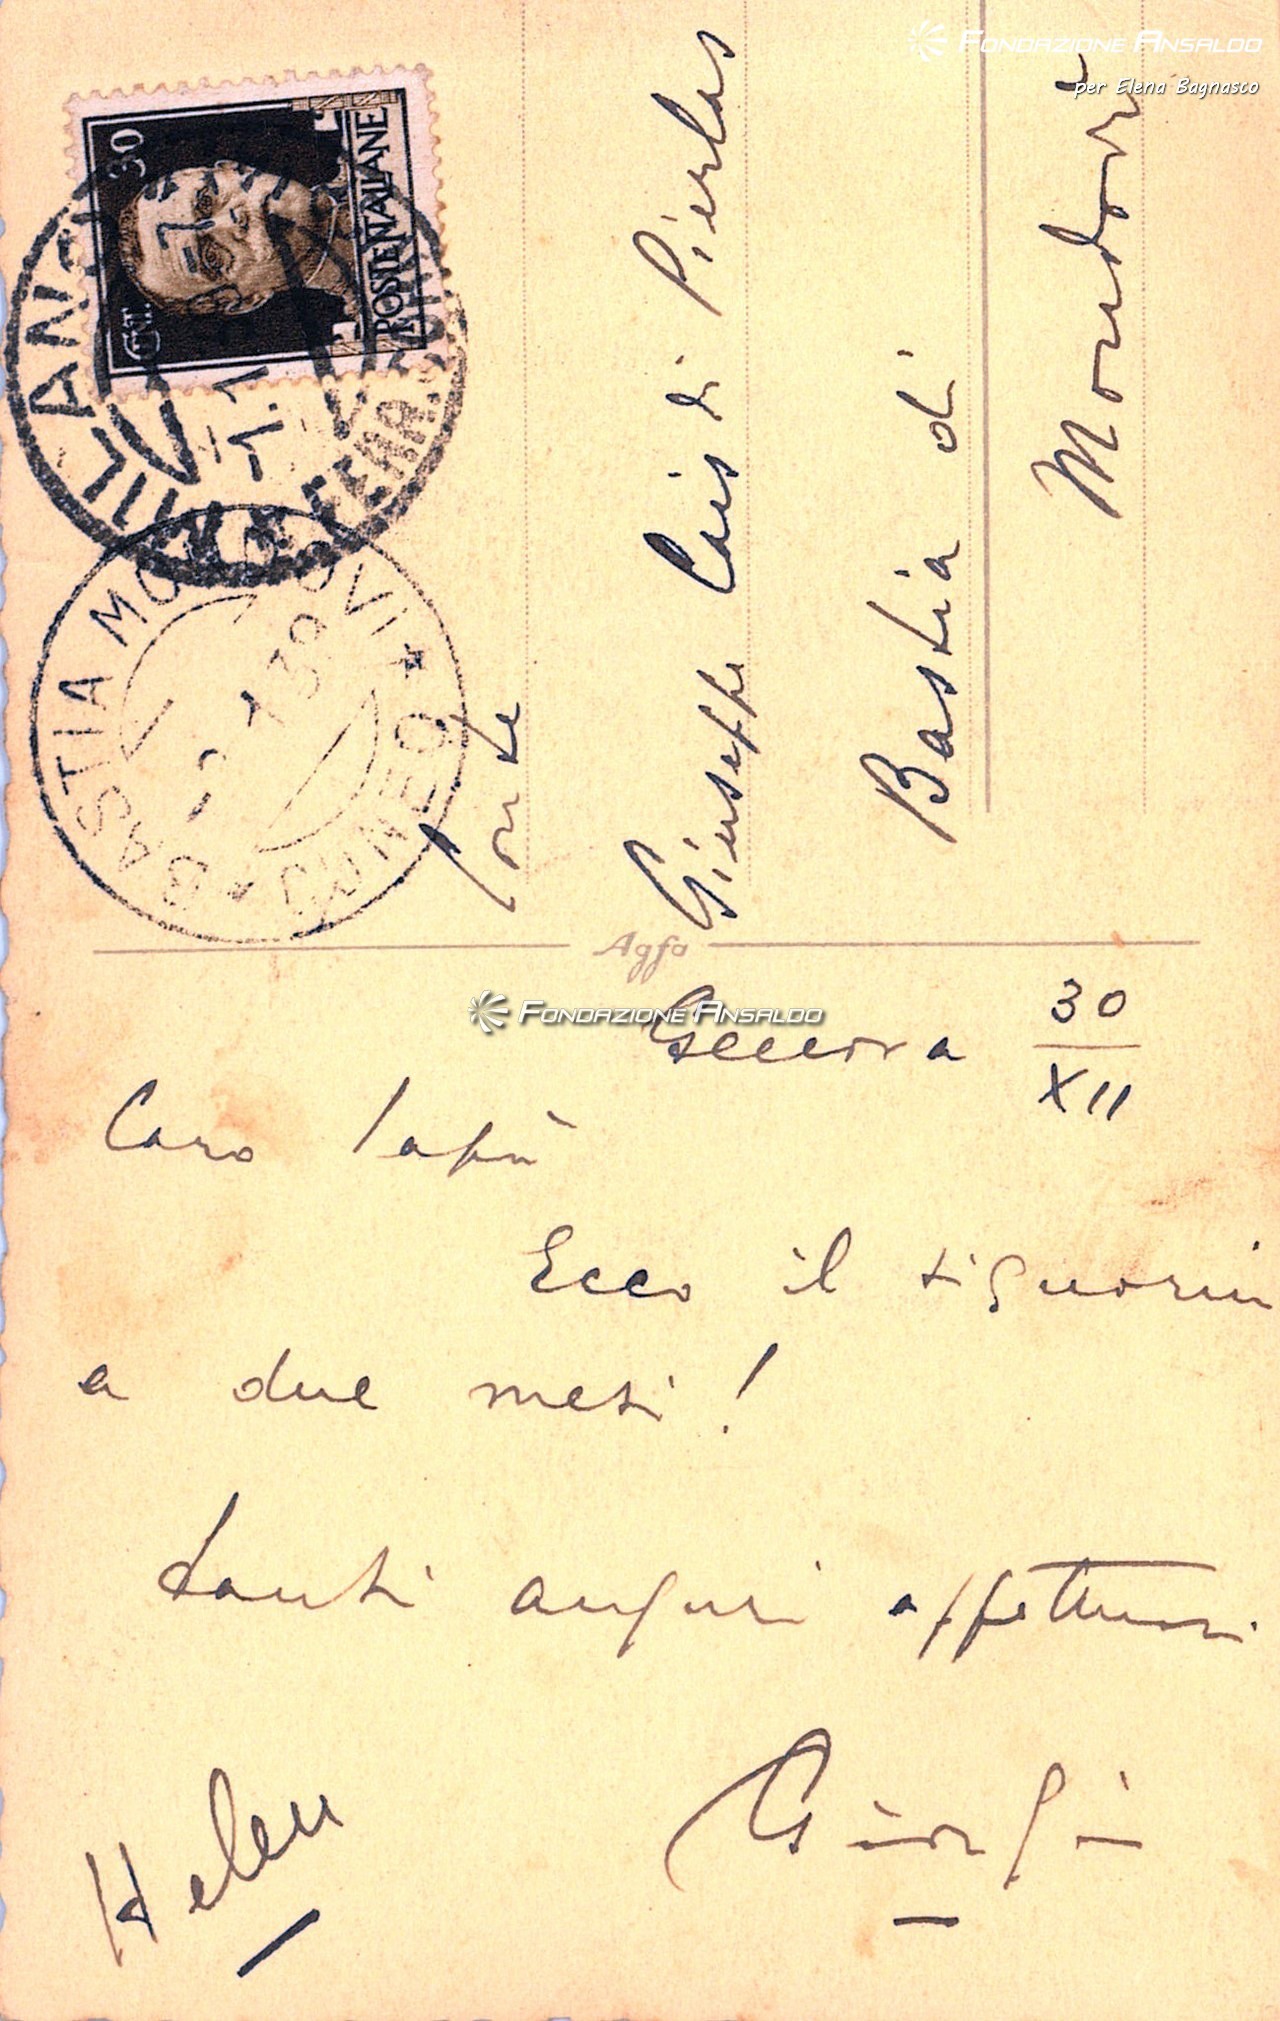 FONDAZIONE ANSALDO
per Elena Bagnasco
CENT. 30
POSTE ITALIANE
MILANO
FERR.
BASTIA MONDOVI
CUNEO
Conte
Giuseppe Cais di Pierlas
Bastia di
Mondovì
Agfa
FONDAZIONE ANSALDO
Genova 30
XII
Caro Papà
Ecco il signorin
a due mesi!
Tanti auguri affettuosi
Giorgio
Helen